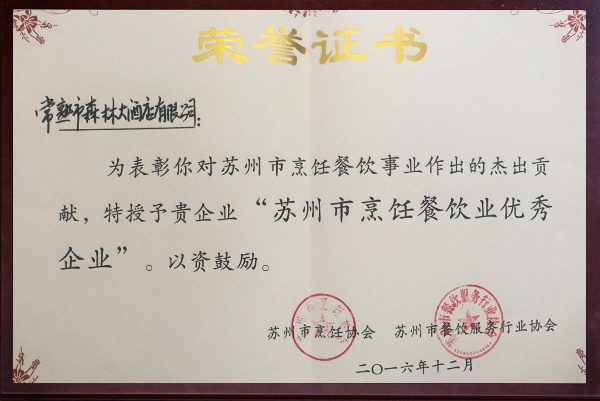 荣誉证书
常熟市森林大酒店有限公司：
为表彰你对苏州市烹饪餐饮事业作出的杰出贡
献，特授予贵企业“苏州市烹饪餐饮业优秀
企业”。以资鼓励。
苏州市烹饪协会 苏州市餐饮服务行业协会
二〇一六年十二月